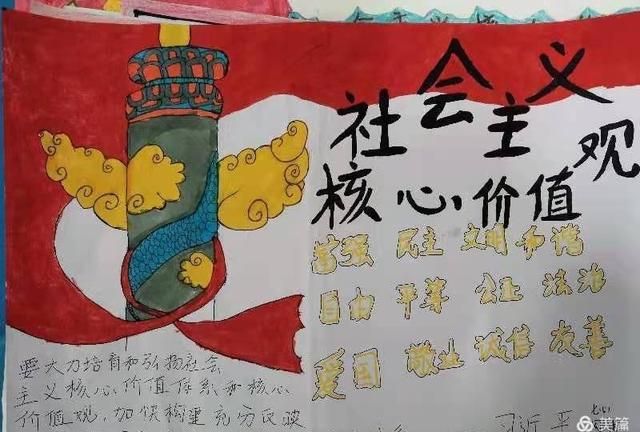 社会主义
核心价值观
富强 民主 文明 和谐
自由 平等 公正 法治
爱国 敬业 诚信 友善
要大力培育和弘扬社会
主义核心价值体系和核心
价值观，加快构建充分反映
习近平
美篇